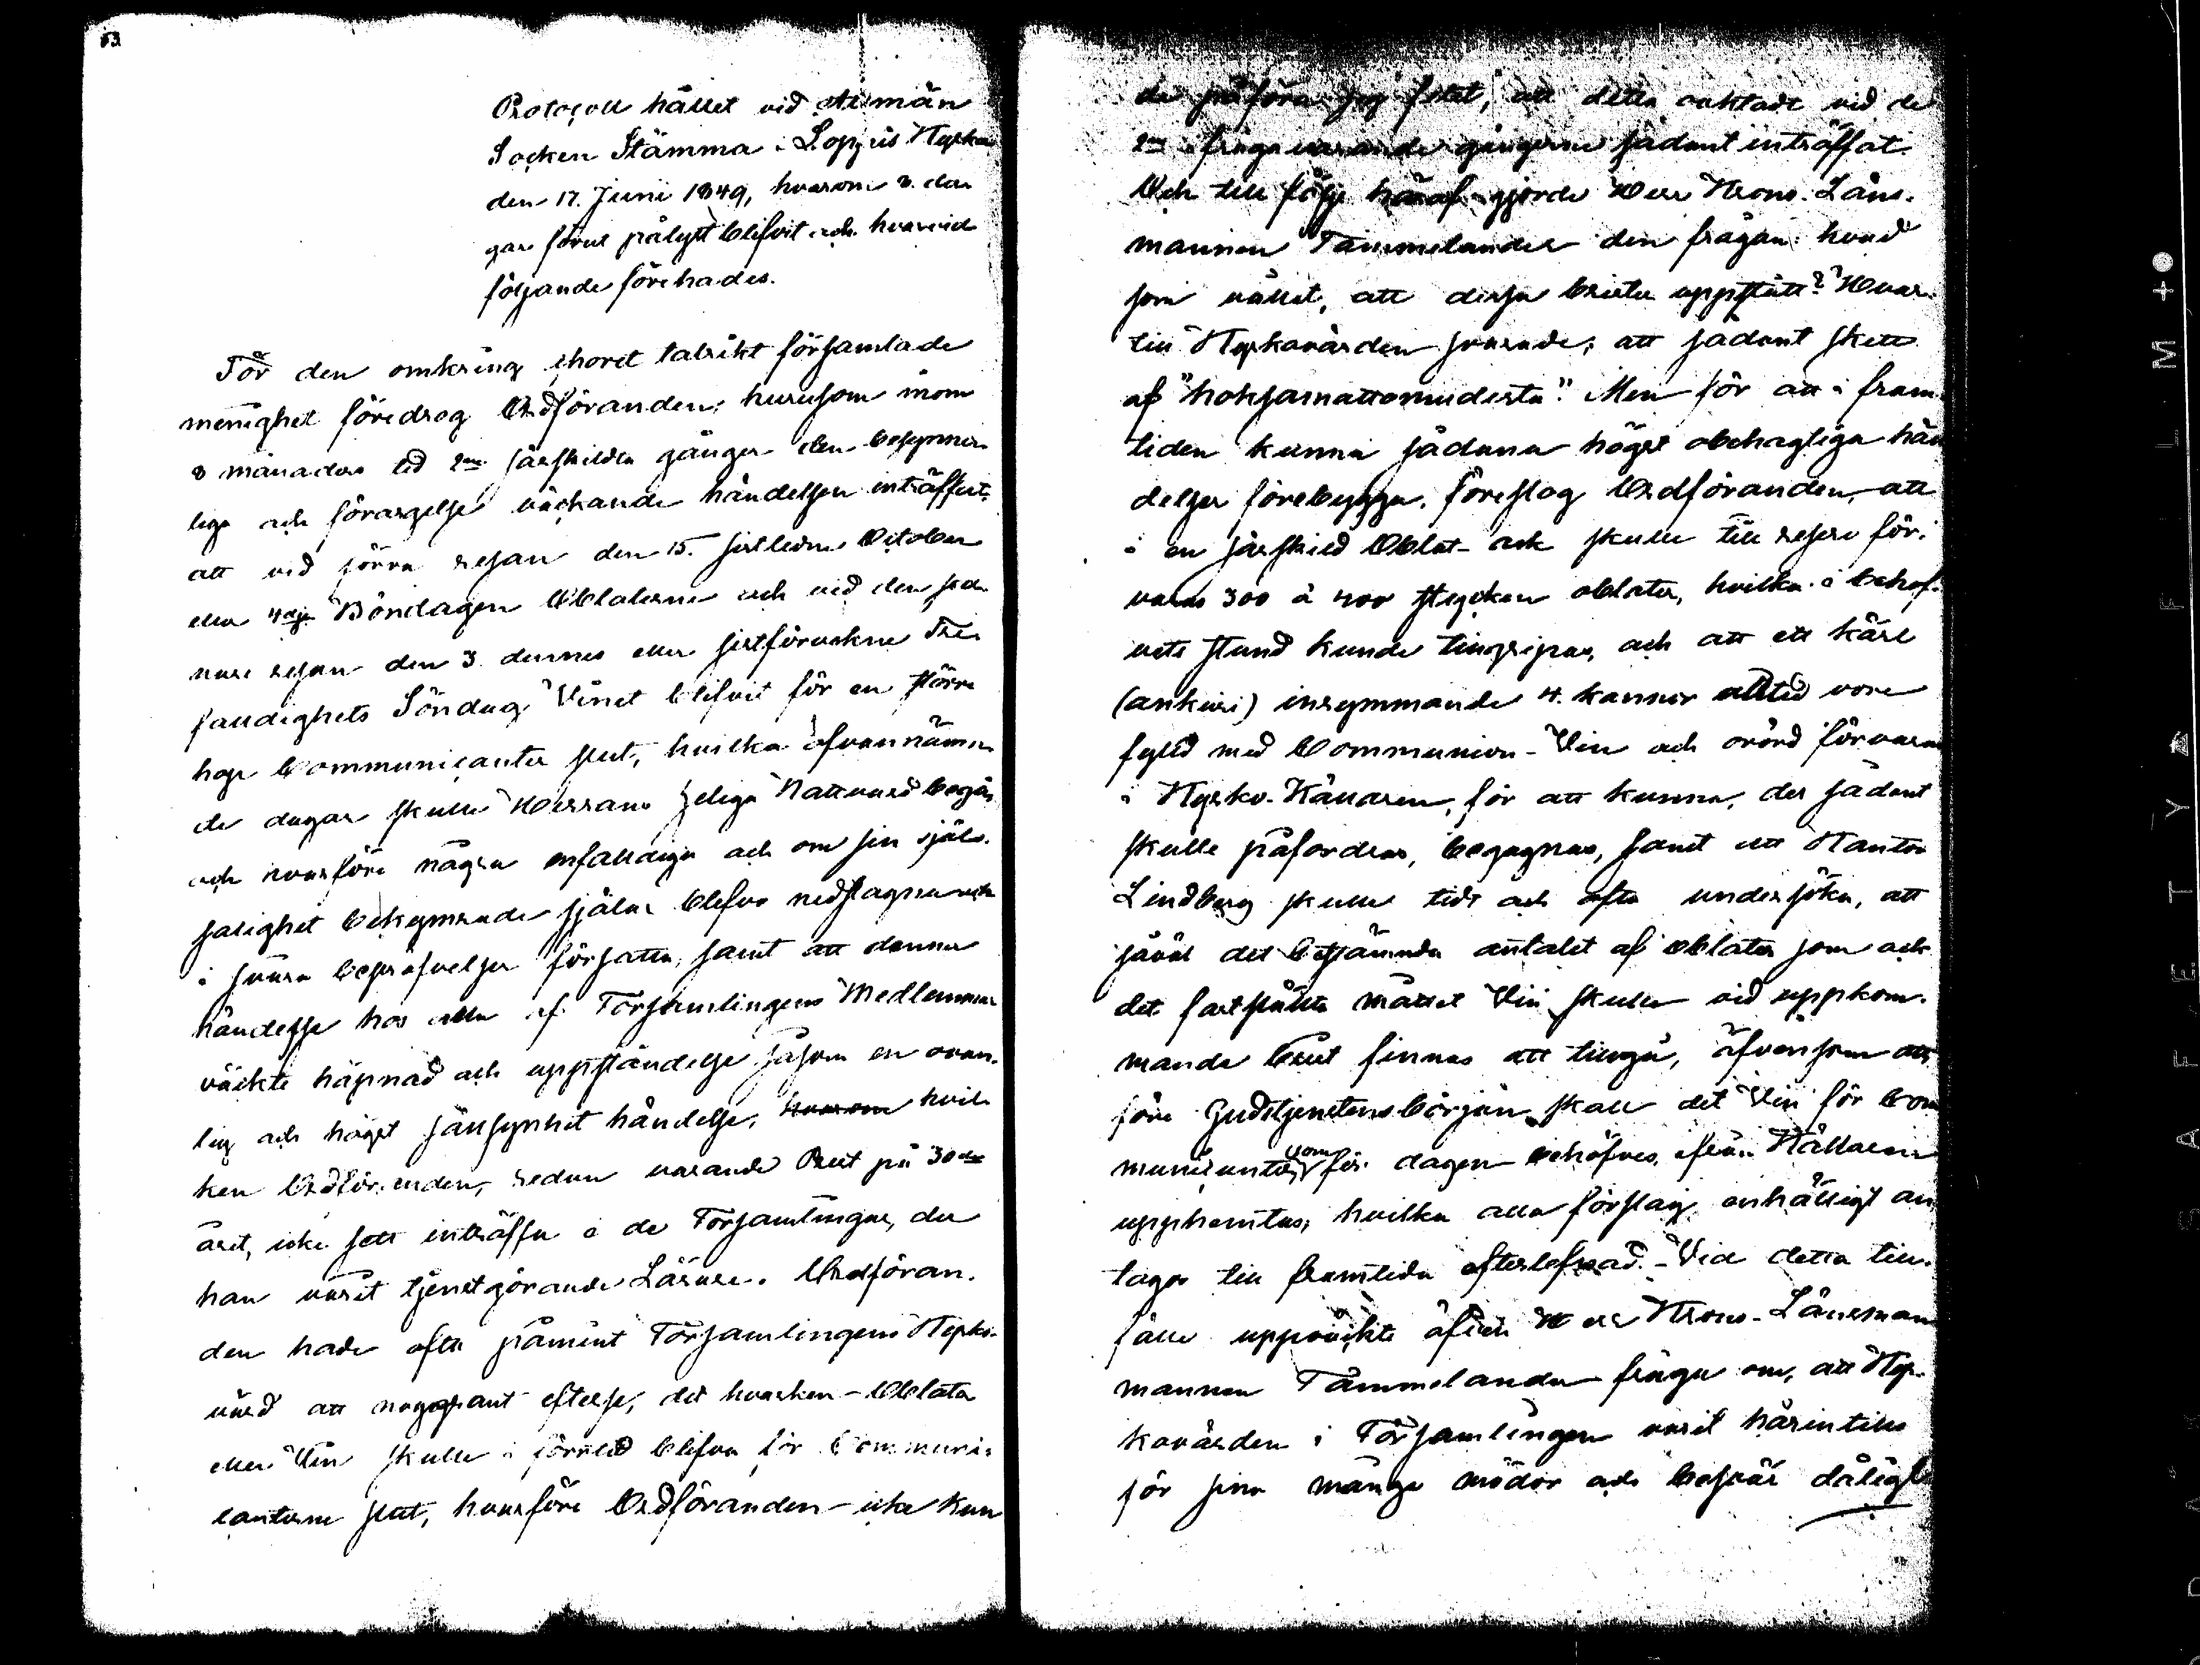 Protocoll hållet vid Allmän
Socken Stämma i Loppis Kyrka
den 17. Junii 1849, hvarom 8. da-
gar förut pålyst blifvit och hvarvid
följande förehades.
För den omkring choret talrikt församlade
menighet föredrog Ordföranden; hurusom inom
8 månaders tid 2ne särskildta gånger den besynner-
liga och förargelse väckande händelsen inträffat,
att vid förra resan den 15. sistledne October
eller 4de Böndagen Oblaterne och vid den sed-
nare resan den 3. dennes eller sistförvekne Tre-
faldighets Söndag Vinet blifvit för en större
hop Communicanter slut, hvilka ofvannämn-
de dagar skulle Herrans Heliga Nattvard begå,
och hvarföre några enfaldiga och om sin själs-
salighet bekymrade själar blefvo nedslagna och
i svåra bepröfvelser försatta, samt att denna
händelse hos alla af Församlingens Medlemmar
väckte häpnad och uppståndelse såsom en ovan-
lig och högst sällsynhet händelse, hvarom hvil-
ken Ordföranden, redan varande Prest på 30de
året, icke sett inträffa i de Församlingar, der
han varit tjenstgörande Lärare. Ordföran-
den hade ofta påmint Församlingens Kyrko-
värd att noggrant efterse, det hvarken Oblater
eller Vin skulle i förråd blifva för Communi-
canterne slut, hvarföre Ordföranden icke kun
de påföra sig felet, att detta oaktadt vid de
2ne ifrågavarande gångerne sådant inträffat.
Och till följe häraf gjorde Herr Krono-Läns-
mannen Tammelander den frågan: hvad
som vållat, att dessa brister uppstått? Hvar-
till Kyrkovärden svarade; att sådant skett
af "hoksamattomudesta". Men för att i fram-
tiden kunna sådana högst obehagliga hän
delser förebygga, föreslog Ordföranden, att
i en särskild Oblat-ask skulle till reserv för-
varas 300 à 400 stycken oblater, hvilka i behof-
vets stund kunde tingripas, och att ett kärl
(ankuri) inrymmande 4. kannor alltid vore
fylld med Communion-Vin och orörd förvaras
i Kyrko-Källaren, för att kunna, der sådant
skulle påfordras, begagnas, samt att Kantor
Lindberg skulle tidt och ofta undersöka, att
såväl det bestämda antalet af oblater som ock
det fastställta måttet Vin skulle vid uppkom-
mande brist finnas att tillgå, äfvensom att
före Gudstjenstens början skall det Vin för Com
municanter som för dagen behöfves, ifrån Källaren
upphemtas, hvilka alla förslag enhälligt an
togos till framtida efterlefnad. - Vid detta till-
fälle uppväckte äfven Herr Krono-Länsman
mannen Tammelander fråga om, att Kyr-
kovärden i Församlingen varit härintills
för sina många mödor och besvär dåligt